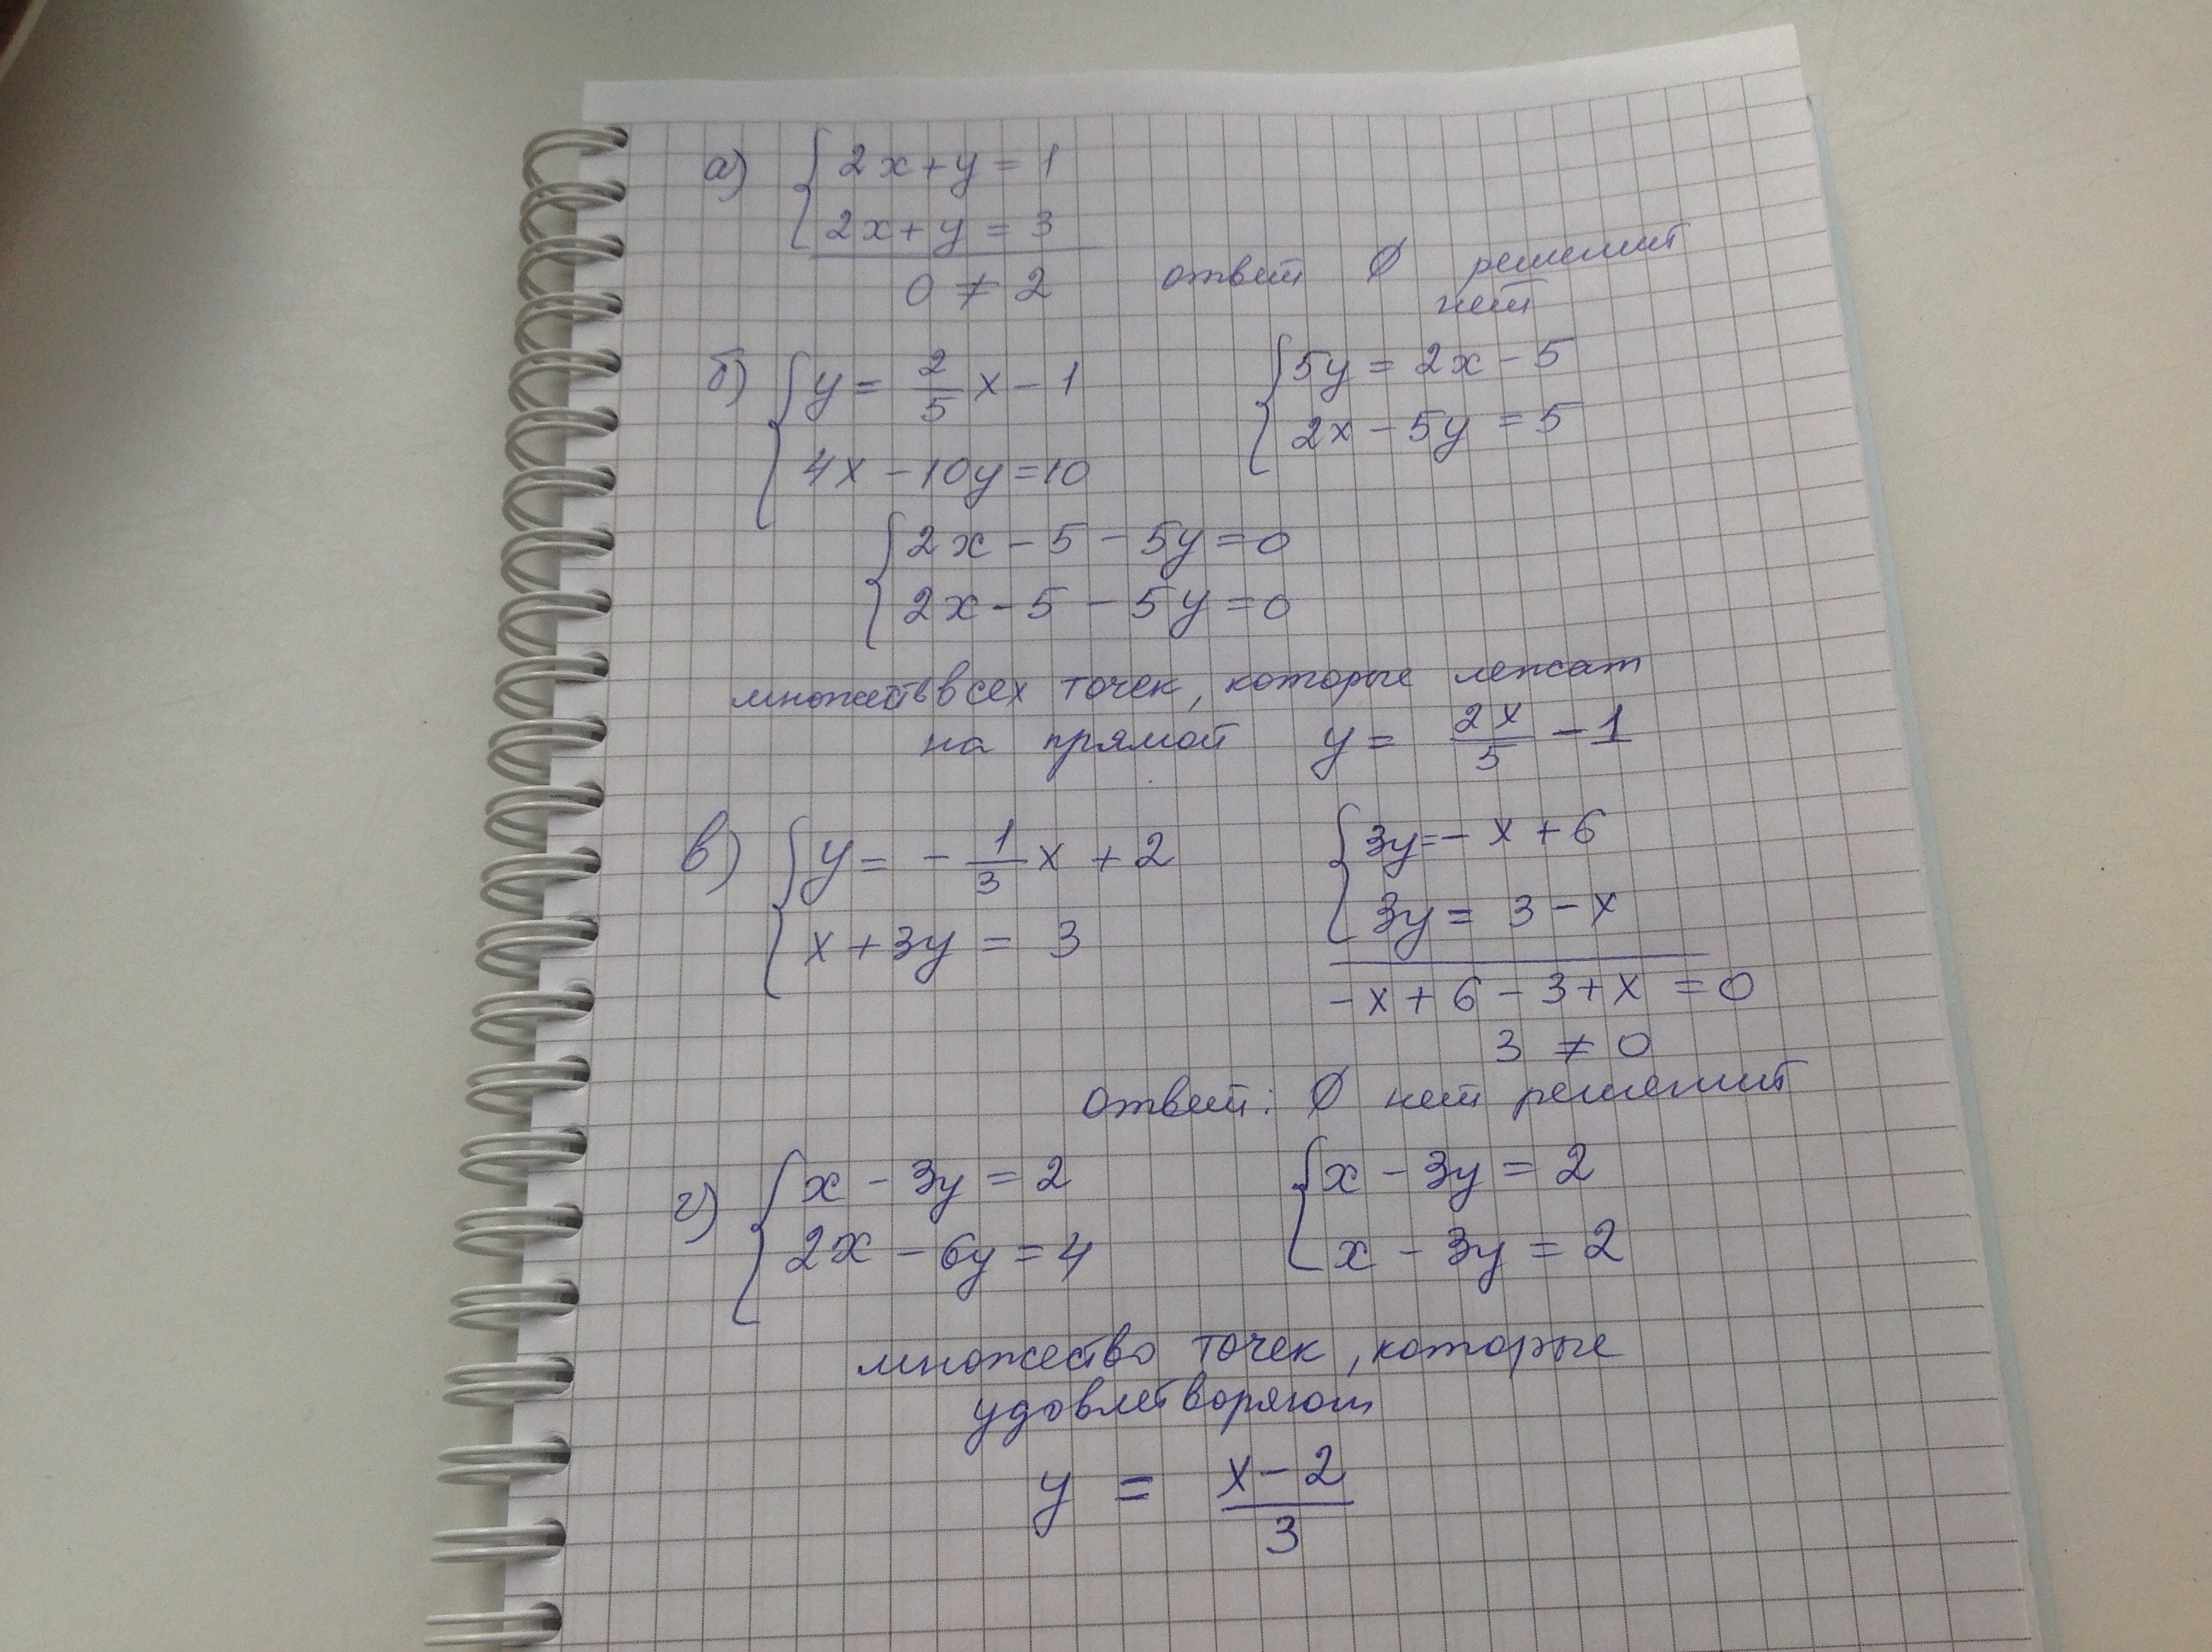 а) { 2x + y = 1
2x + y = 3
0 ≠ 2 ответ ∅ решений
нет
б) { y = 2/5 x - 1 { 5y = 2x - 5
4x - 10y = 10 2x - 5y = 5
{ 2x - 5 - 5y = 0
2x - 5 - 5y = 0
множеств всех точек, которые лежат
на прямой y = 2x/5 - 1
в) { y = - 1/3 x + 2 { 3y = - x + 6
x + 3y = 3 3y = 3 - x
- x + 6 - 3 + x = 0
3 ≠ 0
ответ: ∅ нет решений
г) { x - 3y = 2 { x - 3y = 2
2x - 6y = 4 x - 3y = 2
множество точек, которые
удовлетворяют
y = x - 2 / 3